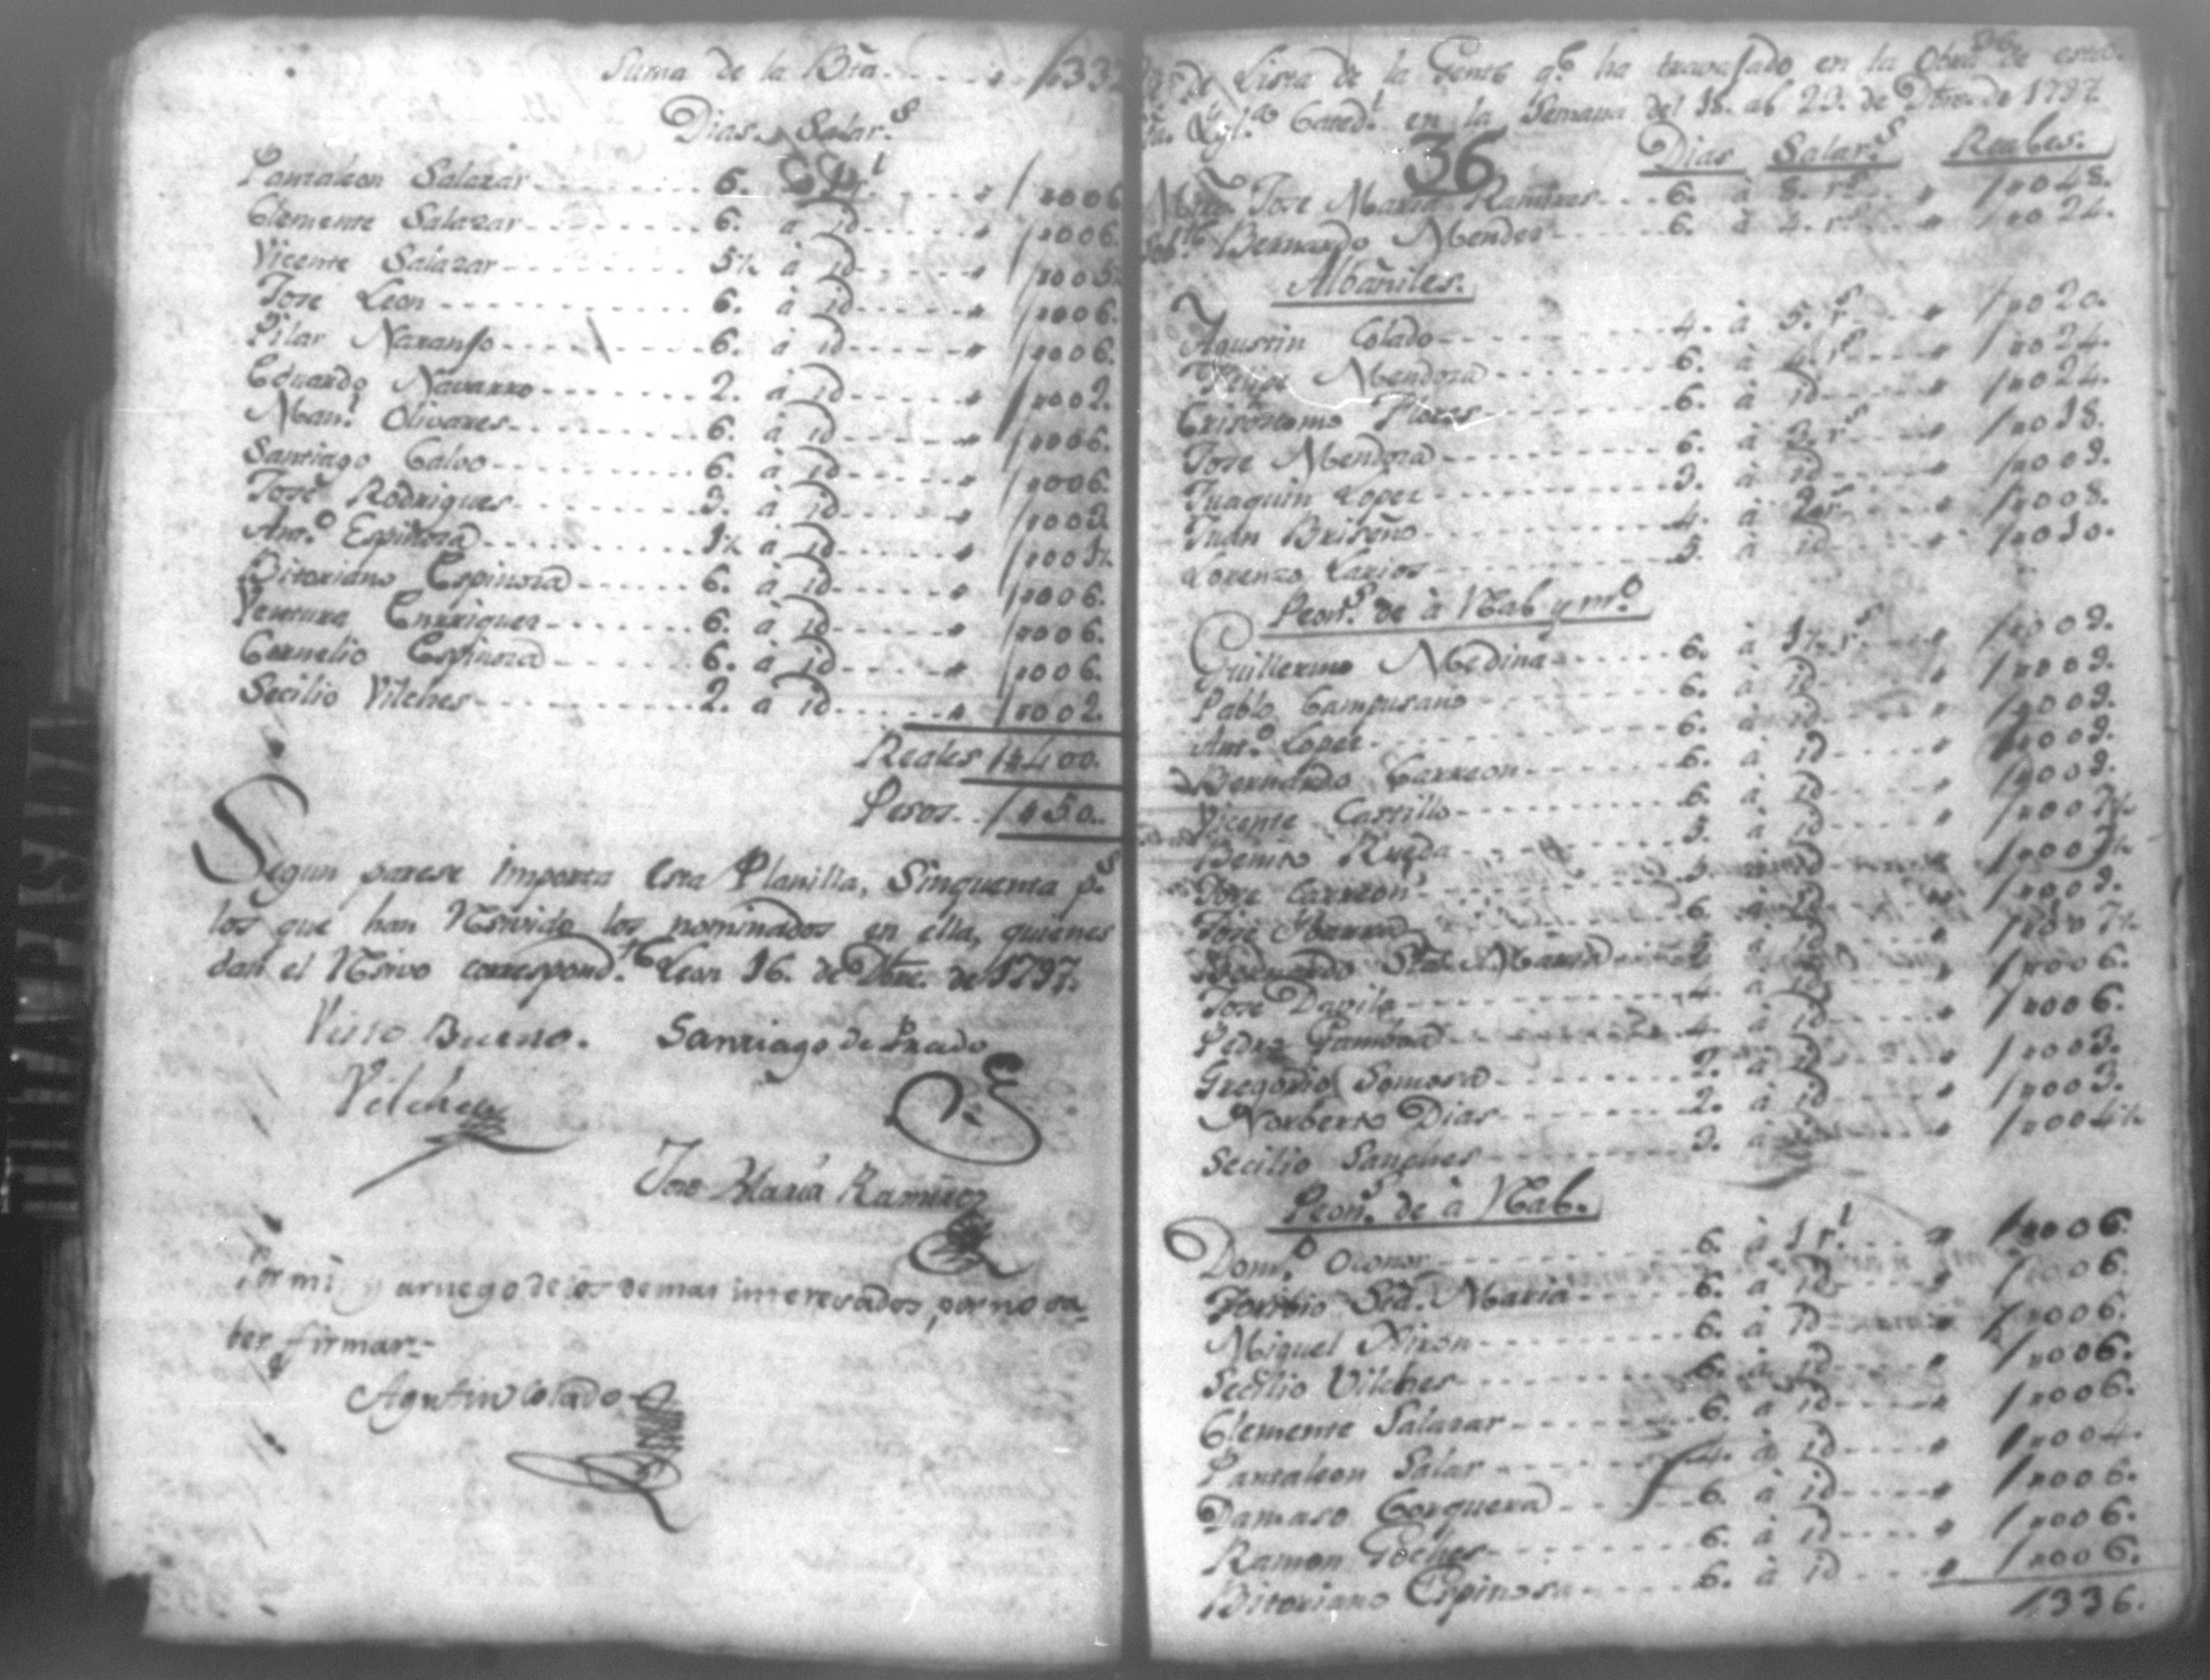 Suma de la Bta. . . . . /332
Dias Salar.s
Pantaleon Salazar 6. à 1 r.l /0006
Clemente Salazar 6. à id /0006.
Vicente Salazar 5½ à id /0005
Jose Leon 6. à id /0006.
Pilar Naranjo 6. à id /0006.
Eduardo Navarro 2. à id /0002.
Man.l Olivares 6. à id /0006.
Santiago Calvo 6. à id /0006.
José Rodrigues 3. à id /0003.
Ant.o Espinoza 1½ à id /0001½
Bitoriano Espinoza 6. à id /0006.
Ventura Enrriquez 6. à id /0006.
Cornelio Espinoza 6. à id /0006.
Secilio Vilches 2. à id /0002.
Reales /400.
Pesos /050.
Segun parese importa esta Planilla, Sinquenta p.s
los que han Resivido los nominados en ella, quienes
dan el Resivo correspond.te Leon 16. de Dbre. de 1797.
Visto Bueno. Santiago de Prado
Vilches
Jose Maria Ramires
Por mi y arruego de los demas interesados, por no sa-
ber firmar=
Agustin Colado
Lista de la Gente q.e ha travajado en la Obra de esta
Ygl.a Cated.l en la Semana del 18. al 23. de Dbre. de 1797
36
Dias Salar.s Reales.
Mtro. Jose Maria Ramires 6. à 8. r.s /0048.
Bernardo Mendes 6. à 4. r.s /0024.
Albañiles.
Agustin Colado 4. à 5. r.s /0020.
Felipe Mendoza 6. à 4. r.s /0024.
Crisostomo Flores 6. à id /0024.
Jose Mendoza 6. à 3. r.s /0018.
Juaquin Lopez 3. à id /0009.
Juan Briseño 4. à 2 r.s /0008.
Lorenzo Larios 5. à id /0010.
Peon.s de à Real y m.o
Guillermo Medina 6. à 1½ r.s /0009.
Pablo Campusano 6. à id /0009.
Ant.o Lopez 6. à id /0009.
Bernardo Carreon 6. à id /0009.
Vicente Castillo 6. à id /0009.
Benito Rueda 5. à id /0007½
Jose Carreon 5. à id /0007½
Jose Ibarra 6. à id /0009.
Sta. Maria à id /0007½
Jose Davila 4. à id /0006.
Pedro Gamboa 4. à id /0006.
Gregorio Somosa 2. à id /0003.
Norberto Dias 2. à id /0003.
Secilio Sanches 3. à id /0004½
Peon.s de à Real.
Dom.o Oconor 6. à 1 r.l /0006.
Toribio Sta. Maria 6. à id /0006.
Miguel Xiron 6. à id /0006.
Secilio Vilches 6. à id /0006.
Clemente Salazar 6. à id /0006.
Pantaleon Salar 4. à id /0004.
Damaso Corquera 6. à id /0006.
Ramon 6. à id /0006.
Bitoriano Espinosa 6. à id /0006.
/336.